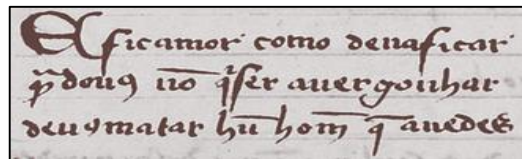 Aficamor como deuaficar
pᷓ donꝰ nō qͥser auergonhar
deuꝰmatar hū hom̄ q̄ auedes